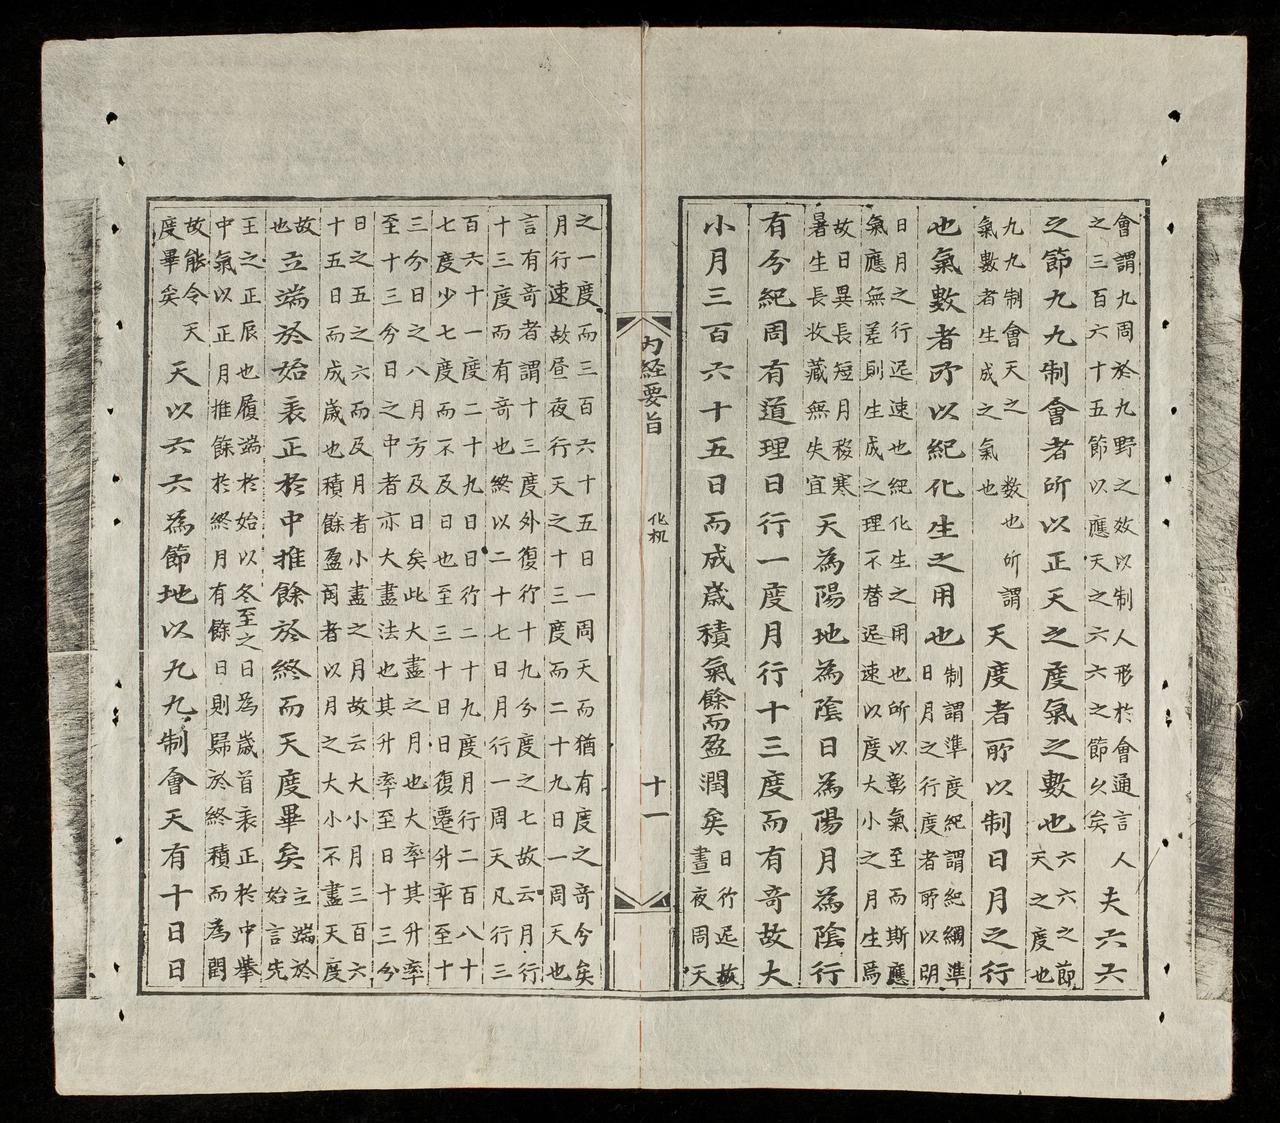 會謂九周於九野之效以制人形於會通言人
之三百六十五節以應天之六六之節久矣
夫六六
之節九九制會者所以正天之度氣之數也
六六之節
天之度也
九九制會天之数也所謂
氣數者生成之氣也
天度者所以制日月之行
也氣數者所以紀化生之用也
制謂準度紀謂紀綱準
日月之行度者所以明
日月之行遲速也紀化生之用也所以彰氣至而斯應
氣應無差則生成之理不替遲速以度大小之月生焉
故日異長短月移寒
暑生長收藏無失宜
天為陽地為陰日為陽月為陰行
有分紀周有道理日行一度月行十三度而有奇故大
小月三百六十五日而成歲積氣餘而盈潤矣
日行遲故
晝夜周天
内経要旨
化机
十一
之一度而三百六十五日一周天而猶有度之奇分矣
月行速故昼夜行天之十三度而二十九日一周天也
言有奇者謂十三度外復行十九分度之七故云月行
十三度而有奇也終以二十七日月行一周天凡行三
百六十一度二十九日日行二十九度月行二百八十
七度少七度而不及日也至三十日日復遷升率至十
三分日之八月方及日矣此大盡之月也大率其升率
至十三分日之中者亦大盡法也其升率至日十三分
日之五之六而及月者小盡之月故云大小月三百六
十五日而成歲也積餘盈閏者以月之大小不盡天度
故
也
立端於始表正於中推餘於終而天度畢矣
立端於
始言先
王之正辰也履端於始以冬至之日為歲首表正於中舉
中氣以正月推餘於終月有餘日則歸於終積而為閏
故能令天
度畢矣
天以六六為節地以九九制會天有十日日